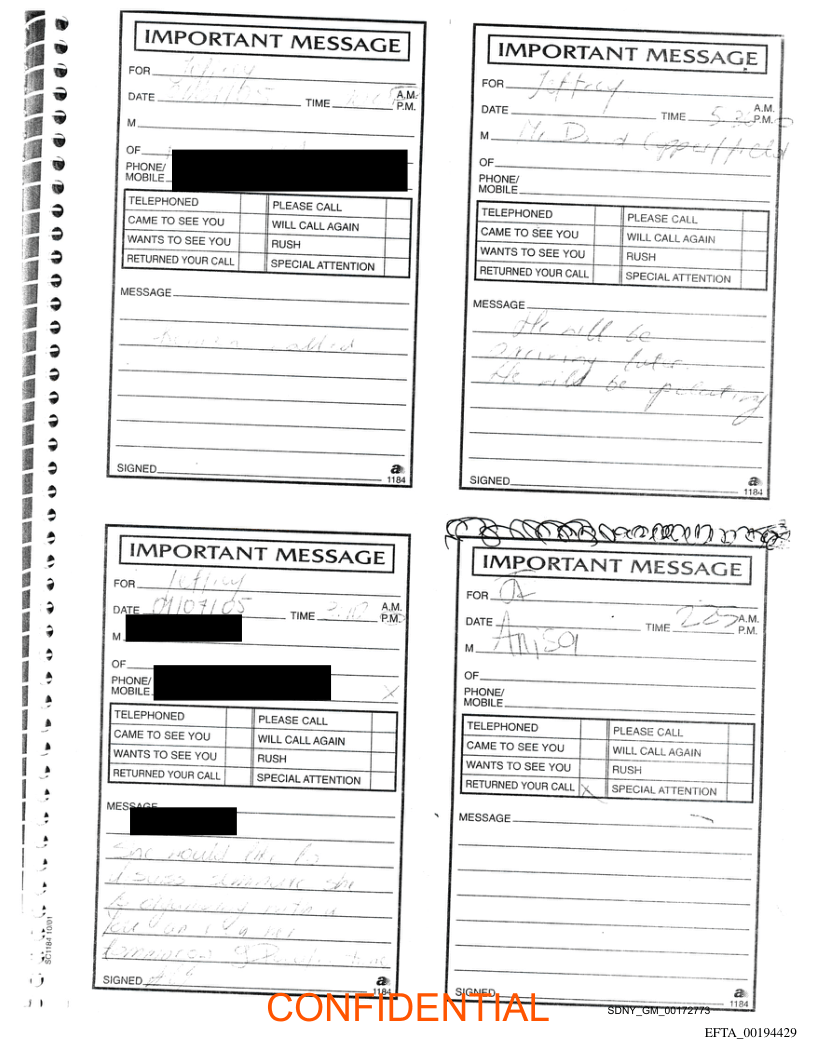 IMPORTANT MESSAGE
FOR Jeffrey
DATE TIME A.M. P.M.
M
OF
PHONE/ MOBILE
TELEPHONED PLEASE CALL
CAME TO SEE YOU WILL CALL AGAIN
WANTS TO SEE YOU RUSH
RETURNED YOUR CALL SPECIAL ATTENTION
MESSAGE
called
SIGNED
1184
IMPORTANT MESSAGE
FOR Jeffrey
DATE TIME 5.30 A.M. P.M.
M Mr David Copperfield
OF
PHONE/ MOBILE
TELEPHONED PLEASE CALL
CAME TO SEE YOU WILL CALL AGAIN
WANTS TO SEE YOU RUSH
RETURNED YOUR CALL SPECIAL ATTENTION
MESSAGE
He will be
later.
He will be
SIGNED
1184
IMPORTANT MESSAGE
FOR Jeffrey
DATE 01/07/05 TIME A.M. P.M.
M
OF
PHONE/ MOBILE
TELEPHONED PLEASE CALL
CAME TO SEE YOU WILL CALL AGAIN
WANTS TO SEE YOU RUSH
RETURNED YOUR CALL SPECIAL ATTENTION
MESSAGE
She would like to
she
is
SIGNED
1184
IMPORTANT MESSAGE
FOR
DATE TIME A.M. P.M.
M
OF
PHONE/ MOBILE
TELEPHONED PLEASE CALL
CAME TO SEE YOU WILL CALL AGAIN
WANTS TO SEE YOU RUSH
RETURNED YOUR CALL X SPECIAL ATTENTION
MESSAGE
SIGNED
1184
SC1184 10/01
CONFIDENTIAL
SDNY_GM_00172773
EFTA_00194429